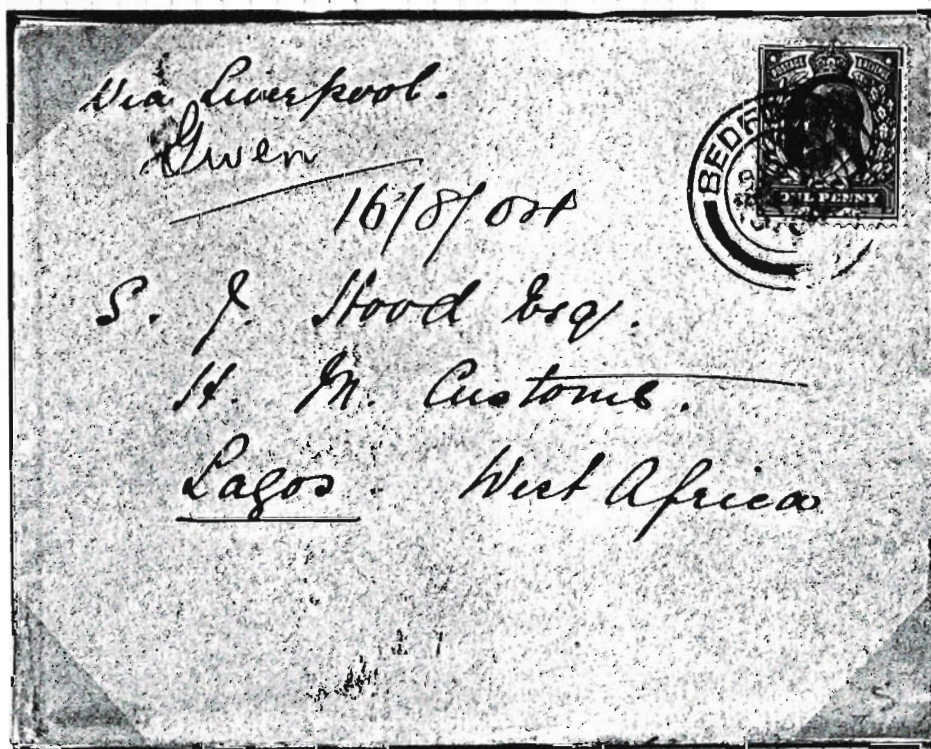 Via Liverpool.
Gwen
16/8/04
S. J. Hood Esq.
H. M. Customs.
Lagos West Africa
POSTAGE REVENUE
ONE PENNY